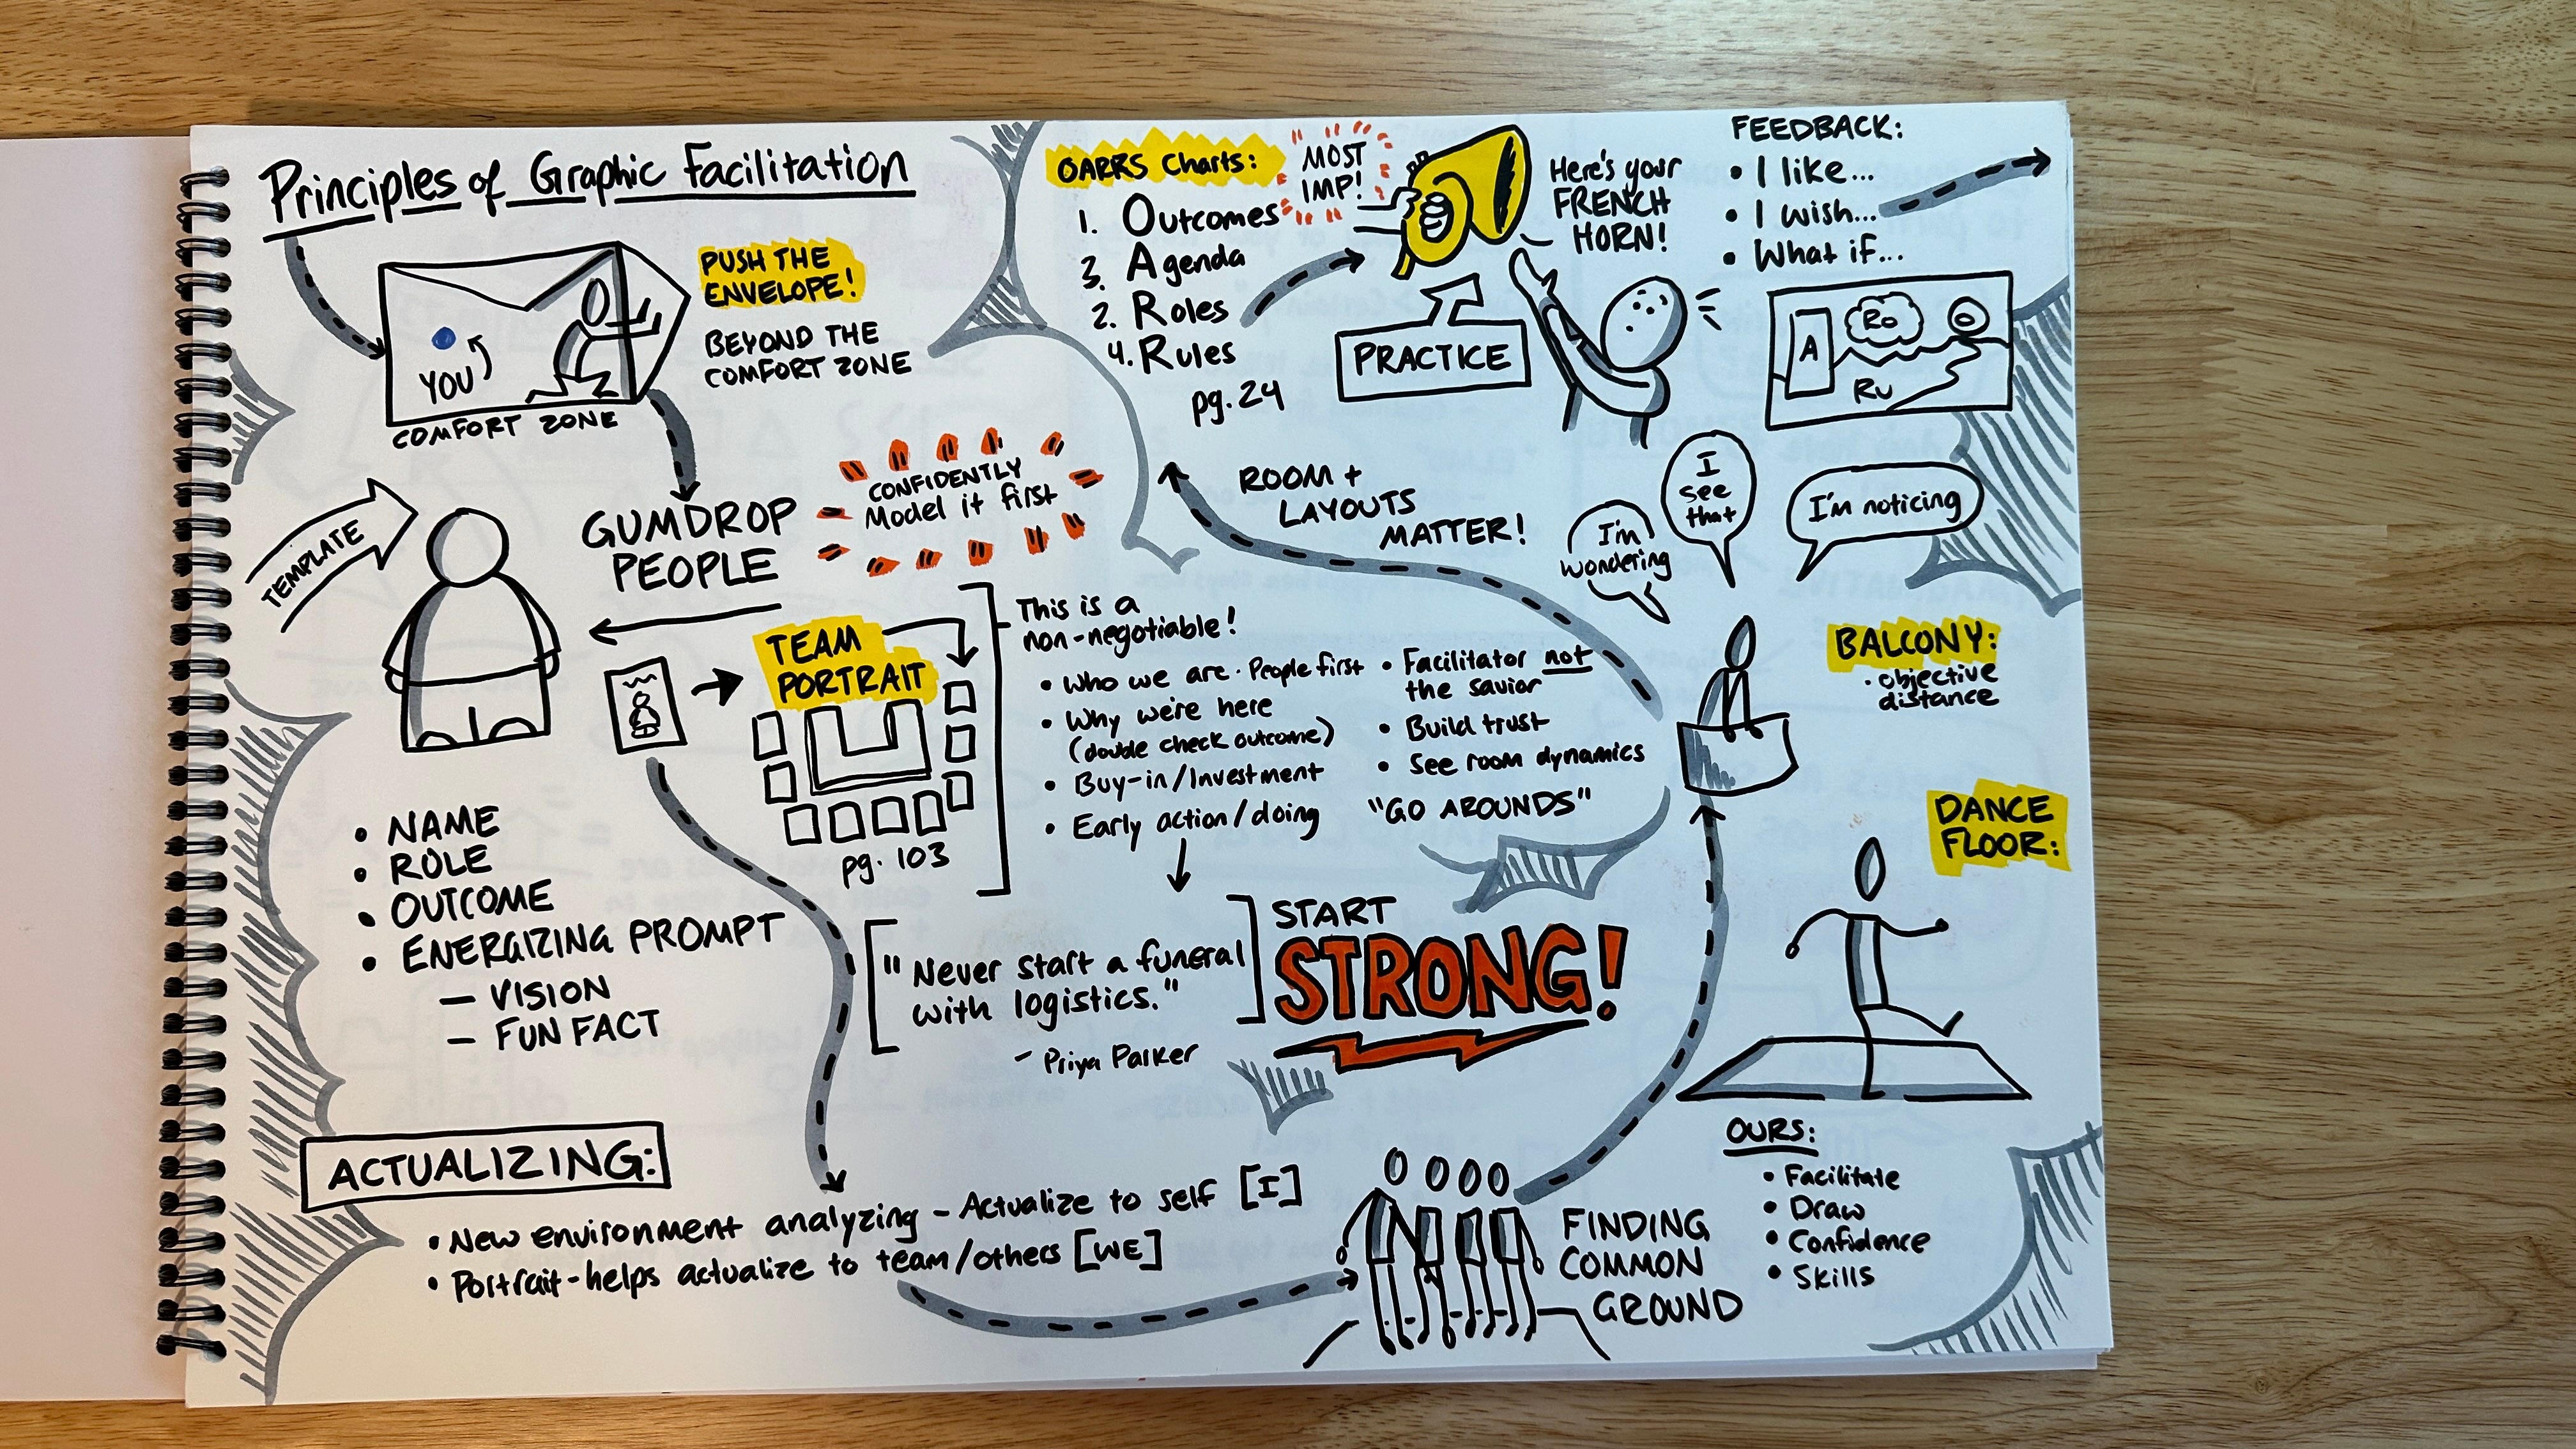 Principles of Graphic Facilitation
PUSH THE
ENVELOPE!
BEYOND THE
COMFORT ZONE
YOU
COMFORT ZONE
TEMPLATE
GUMDROP
PEOPLE
CONFIDENTLY
Model it first
TEAM
PORTRAIT
pg. 103
• NAME
• ROLE
• OUTCOME
• ENERGIZING PROMPT
— VISION
— FUN FACT
This is a
non-negotiable!
• Who we are · People first
• Why we're here
(double check outcome)
• Buy-in/Investment
• Early action/doing
• Facilitator not
the savior
• Build trust
• See room dynamics
"GO AROUNDS"
"Never start a funeral
with logistics."
- Priya Parker
START
STRONG!
ACTUALIZING:
• New environment analyzing - Actualize to self [I]
• Portrait - helps actualize to team/others [WE]
FINDING
COMMON
GROUND
OARRS Charts:
MOST
IMP!
1. Outcomes
3. Agenda
2. Roles
4. Rules
pg. 24
PRACTICE
Here's your
FRENCH
HORN!
FEEDBACK:
• I like...
• I wish...
• What if...
A
Ro
O
Ru
ROOM +
LAYOUTS
MATTER!
I'm
wondering
I
see
that
I'm noticing
BALCONY:
· objective
distance
DANCE
FLOOR:
OURS:
• Facilitate
• Draw
• Confidence
• Skills